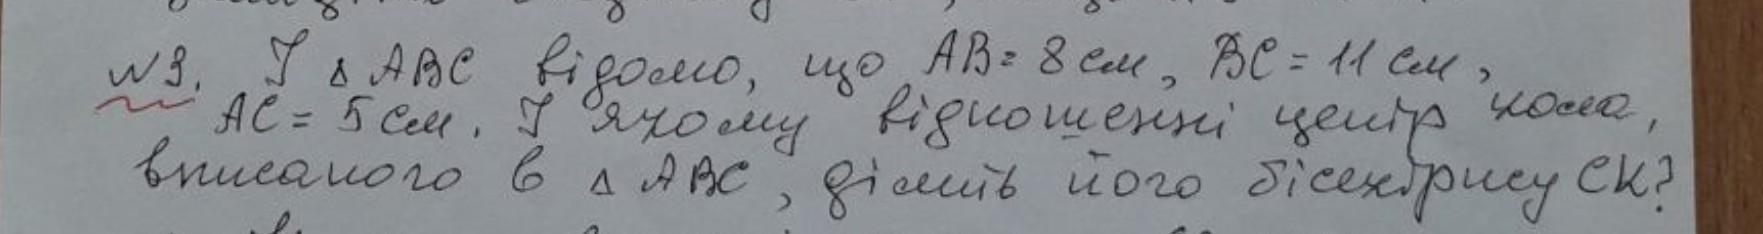 №9. У △ ABC відомо, що AB = 8 см, BC = 11 см,
AC = 5 см. У якому відношенні центр кола,
вписаного в △ ABC, ділить його бісектрису CK?